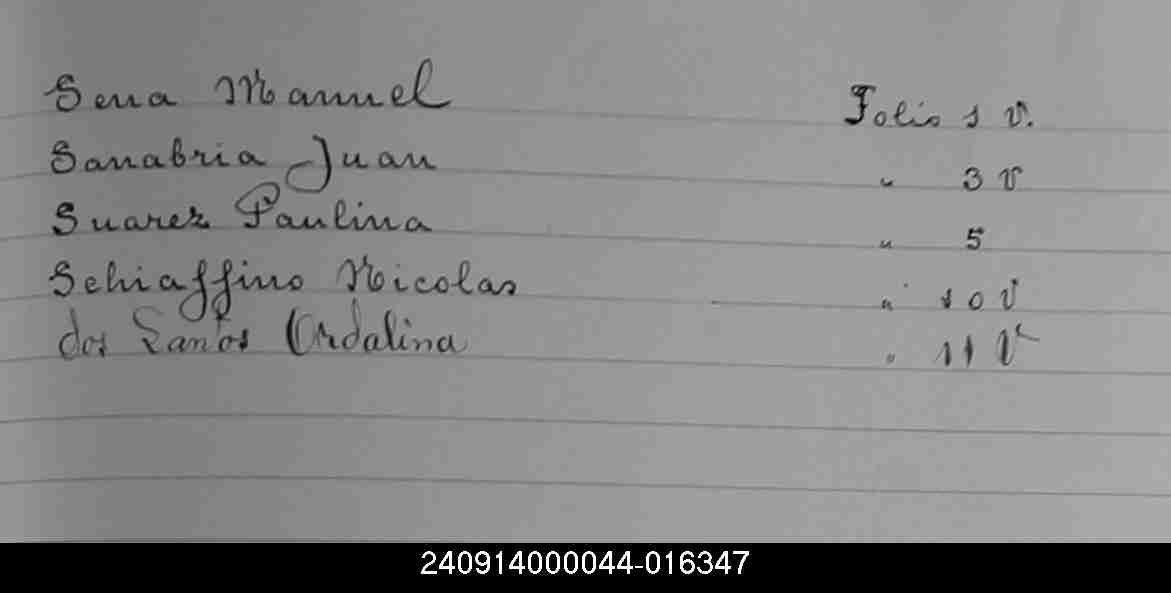 Sena Manuel Folio 1 v.
Sanabria Juan " 3 v
Suarez Paulina " 5
Schiaffino Nicolas " 10 v
dos Santos Ordalina " 11 v
240914000044-016347